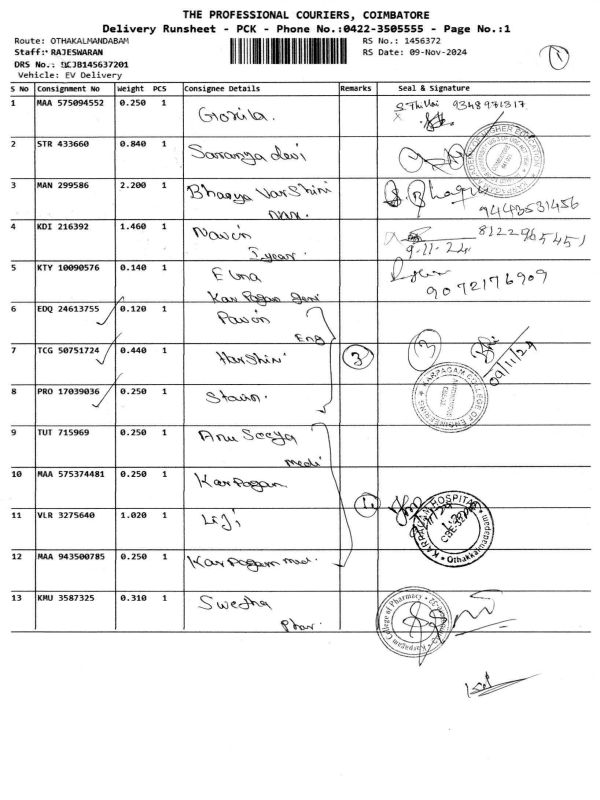 THE PROFESSIONAL COURIERS, COIMBATORE
Delivery Runsheet - PCK - Phone No.:0422-3505555 - Page No.:1
Route: OTHAKALMANDABAM RS No.: 1456372
Staff: RAJESWARAN RS Date: 09-Nov-2024
DRS No.: DCJB145637201
Vehicle: EV Delivery
1
S No Consignment No Weight PCS Consignee Details Remarks Seal & Signature
1 MAA 575094552 0.250 1 S. Thillai 9348971317
2 STR 433660 0.840 1 Saranya devi
3 MAN 299586 2.200 1 Bhagya VarShini
94443531456
4 KDI 216392 1.460 1 Navin 8122965451
I year 9.11.24
5 KTY 10090576 0.140 1
Karpagam 9072176909
6 EDQ 24613755 0.120 1 Pavin
Eng
7 TCG 50751724 0.440 1 HarShini 3 3 09/11/24
8 PRO 17039036 0.250 1
KARPAGAM COLLEGE OF ENGINEERING
9 TUT 715969 0.250 1 Anu Seeya
medi
10 MAA 575374481 0.250 1 Karpagam
11 VLR 3275640 1.020 1 LiJi 4
KARPAGAM HOSPITAL
Othakkal
12 MAA 943500785 0.250 1 Karpagam medi
13 KMU 3587325 0.310 1 Swetha
Phar
Karpagam College of Pharmacy